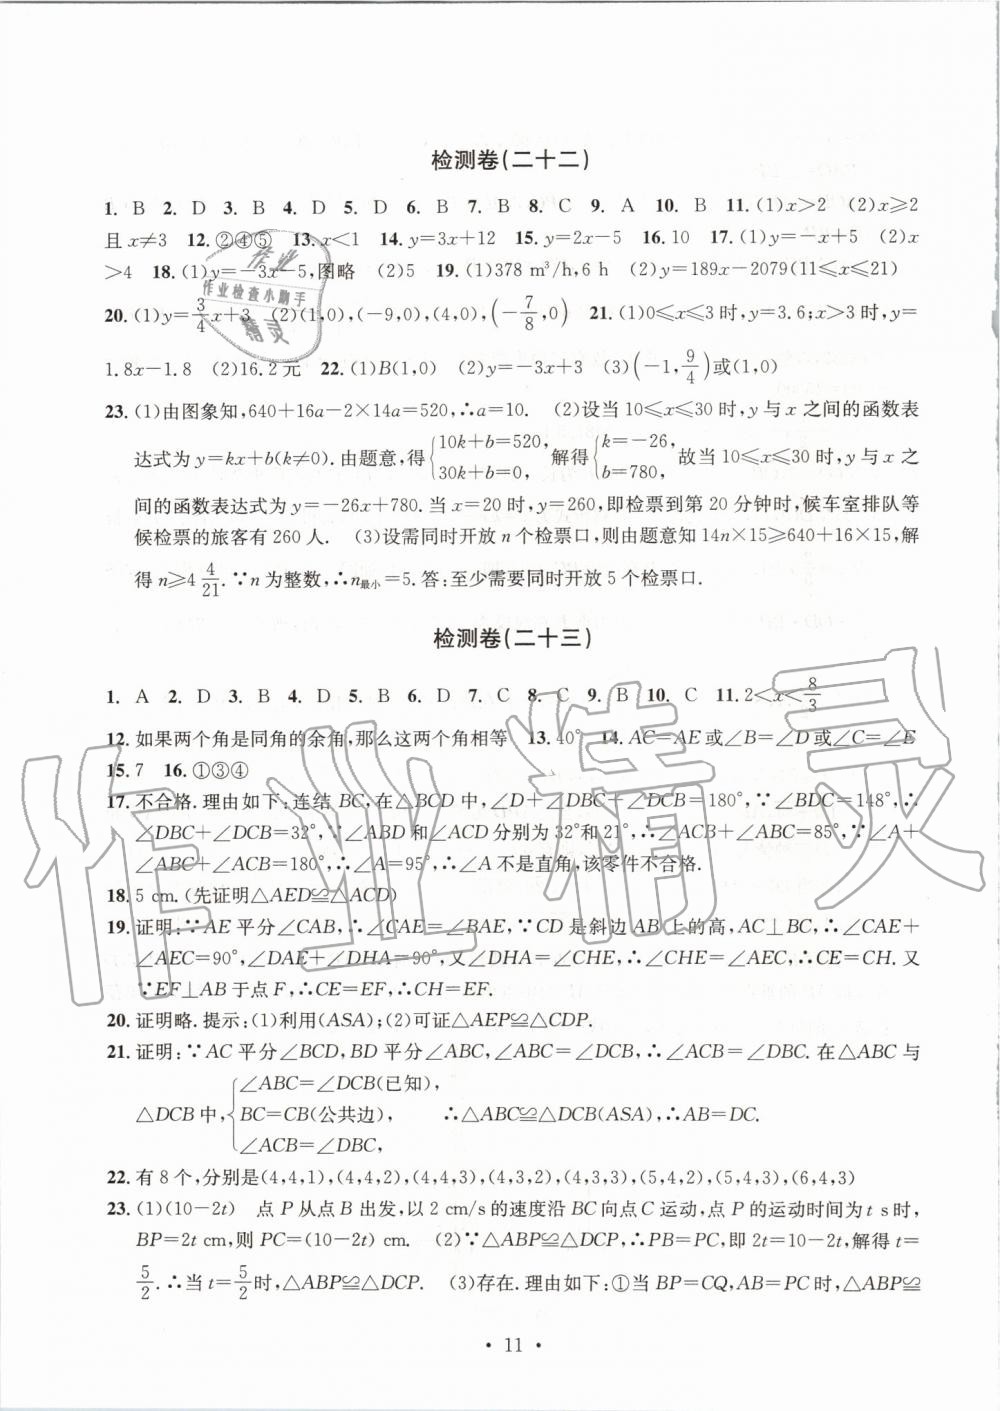 检测卷(二十二)
1. B 2. D 3. B 4. D 5. D 6. B 7. B 8. C 9. A 10. B 11. (1)x>2 (2)x⩾2
且 x≠3 12. ②④⑤ 13. x<1 14. y=3x+12 15. y=2x-5 16. 10 17. (1)y=-x+5 (2)x
>4 18. (1)y=-3x-5,图略 (2)5 19. (1)378 m³/h,6 h (2)y=189x-2079(11⩽x⩽21)
20. (1)y=3/4x+3 (2)(1,0),(-9,0),(4,0),(-7/8,0) 21. (1)0⩽x⩽3 时,y=3.6;x>3 时,y=
1.8x-1.8 (2)16.2 元 22. (1)B(1,0) (2)y=-3x+3 (3)(-1,9/4)或(1,0)
23. (1)由图象知,640+16a-2×14a=520,∴a=10. (2)设当 10⩽x⩽30 时,y 与 x 之间的函数表
达式为 y=kx+b(k≠0).由题意,得{10k+b=520, 30k+b=0, 解得{k=-26, b=780, 故当 10⩽x⩽30 时,y 与 x 之
间的函数表达式为 y=-26x+780.当 x=20 时,y=260,即检票到第 20 分钟时,候车室排队等
候检票的旅客有 260 人. (3)设需同时开放 n 个检票口,则由题意知 14n×15⩾640+16×15,解
得 n⩾4 4/21.∵n 为整数,∴n最小=5.答:至少需要同时开放 5 个检票口.
检测卷(二十三)
1. A 2. D 3. B 4. D 5. B 6. D 7. C 8. C 9. B 10. C 11. 2<x<8/3
12. 如果两个角是同角的余角,那么这两个角相等 13. 40° 14. AC=AE或∠B=∠D或∠C=∠E
15. 7 16. ①③④
17. 不合格.理由如下:连结 BC,在△BCD 中,∠D+∠DBC+∠DCB=180°,∵∠BDC=148°,∴
∠DBC+∠DCB=32°,∵∠ABD 和∠ACD 分别为 32°和 21°,∴∠ACB+∠ABC=85°,∵∠A+
∠ABC+∠ACB=180°,∴∠A=95°,∴∠A 不是直角,该零件不合格.
18. 5 cm.(先证明△AED≌△ACD)
19. 证明:∵AE 平分∠CAB,∴∠CAE=∠BAE,∵CD 是斜边 AB 上的高,AC⊥BC,∴∠CAE+
∠AEC=90°,∠DAE+∠DHA=90°,又∠DHA=∠CHE,∴∠CHE=∠AEC,∴CE=CH.又
∵EF⊥AB 于点 F,∴CE=EF,∴CH=EF.
20. 证明略.提示:(1)利用(ASA);(2)可证△AEP≌△CDP.
21. 证明:∵AC 平分∠BCD,BD 平分∠ABC,∠ABC=∠DCB,∴∠ACB=∠DBC.在△ABC 与
∠ABC=∠DCB(已知),
△DCB 中,{BC=CB(公共边), ∴△ABC≌△DCB(ASA),∴AB=DC.
∠ACB=∠DBC,
22. 有 8 个,分别是(4,4,1),(4,4,2),(4,4,3),(4,3,2),(4,3,3),(5,4,2),(5,4,3),(6,4,3)
23. (1)(10-2t) 点 P 从点 B 出发,以 2 cm/s 的速度沿 BC 向点 C 运动,点 P 的运动时间为 t s 时,
BP=2t cm,则 PC=(10-2t) cm. (2)∵△ABP≌△DCP,∴PB=PC,即 2t=10-2t,解得 t=
5/2.∴当 t=5/2时,△ABP≌△DCP. (3)存在.理由如下:①当 BP=CQ,AB=PC 时,△ABP≌
· 11 ·
作业
作业检查小助手
精灵
作业精灵